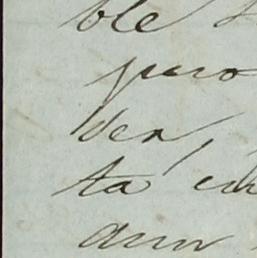 ble
pero
ver,
ta en
aun